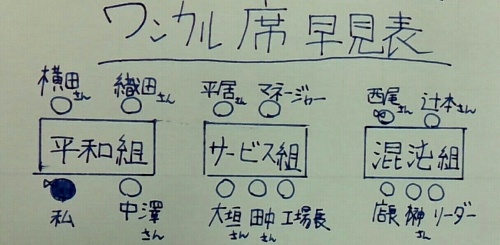 ワンカル席早見表
横田さん 織田さん 平居さん マネージャー 西尾さん 辻本さん
平和組 サービス組 混沌組
私 中澤さん 大垣さん 田中さん 工場長 店長 榊さん リーダー